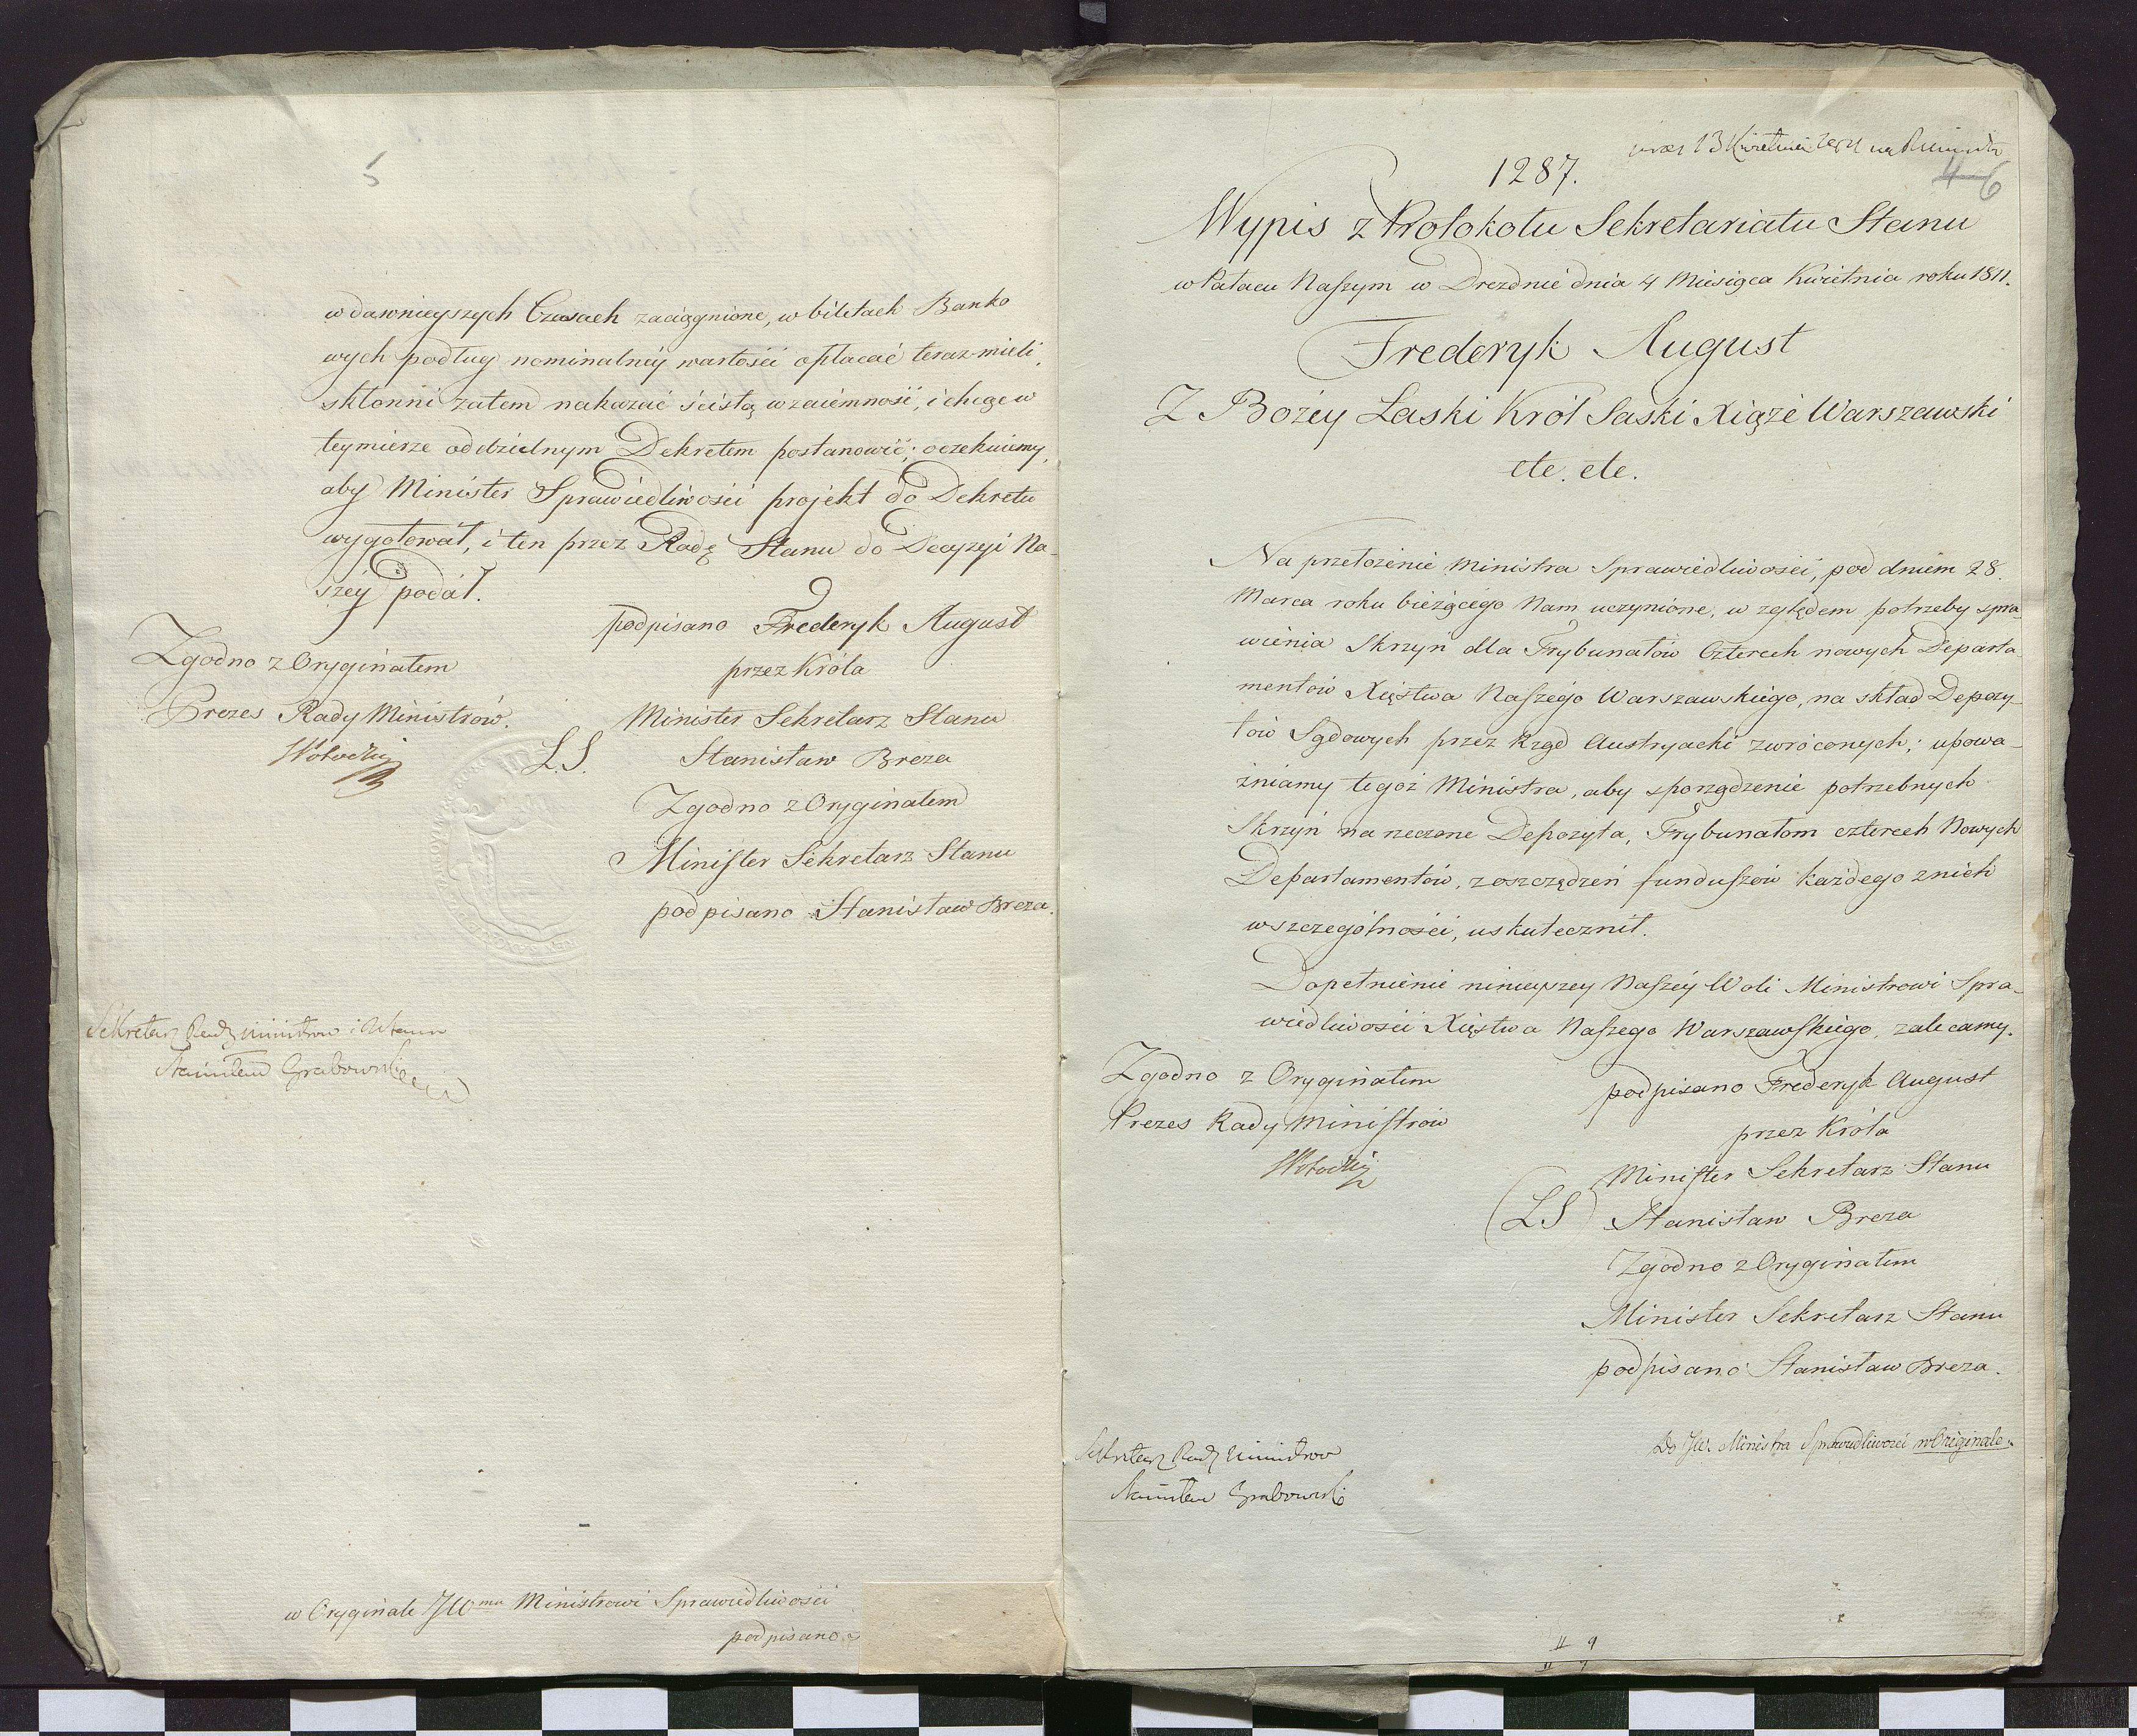 5
w dawnieyszych Czasach zaciągnione, w biletach Banko
wych podług nominalnéy wartości opłacać teraz mieli,
skłonni zatem nakazać ścisłą wzaiémność, i chcąc w
tey mierze oddzielnym Dekretem postanowić; oczekuiemy,
aby Minister Sprawiedliwości projekt do Dekretu
wygotował, i ten przez Radę Stanu do Decyzyi Na-
széy podał.
podpisano Frederyk August
przez Króla
Minister Sekretarz Stanu
L.S. Stanisław Breza
Zgodno z Oryginałem
Minister Sekretarz Stanu
podpisano Stanisław Breza.
Zgodno z Oryginałem
Prezes Rady Ministrów.
Sekretarz Rady Ministrow i Stanu
Stanisław Grabowski
w Oryginale JWmu Ministrowi Sprawiedliwości
podpisano
13 Kwietnia
4 6
1287.
Wypis z Protokołu Sekretariatu Stanu
w Pałacu Naszym w Dreznie dnia 4 Miesiąca Kwietnia roku 1811.
Frederyk August
Z Bożéy Łaski Król Saski Xiąże Warszawski
etc. etc.
Na przełożenie Ministra Sprawiedliwości, pod dniem 28.
Marca roku bieżącégo Nam uczynione, względem potrzeby spra-
wienia Skrzyń dla Trybunałów Czterech nowych Departa-
mentów Xięstwa Naszégo Warszawskiégo, na skład Depozy-
tów Sądowych przez Rząd Austryacki zwróconych; upowa-
żniamy tegoż Ministra, aby sporządzenie potrzebnych
Skrzyń na rzeczone Depozyta, Trybunałom czterech Nowych
Departamentów, z oszczędzeń funduszów każdego z nich
w szczegółności, uskutecznił.
Dopełnienie ninieyszey Naszéy Woli Ministrowi Spra-
wiedliwości Xięstwa Naszego Warszawskiégo, zalecamy.
podpisano Frederyk August
przez Króla
Minister Sekretarz Stanu
(LS) Stanisław Breza
Zgodno z Oryginałem
Minister Sekretarz Stanu
podpisano Stanisław Breza.
Zgodno z Oryginałem
Prezes Rady Ministrów
Sekretarz Rady Ministrow
Stanisław Grabowski
Do JW. Ministra Sprawiedliwości w Originale.